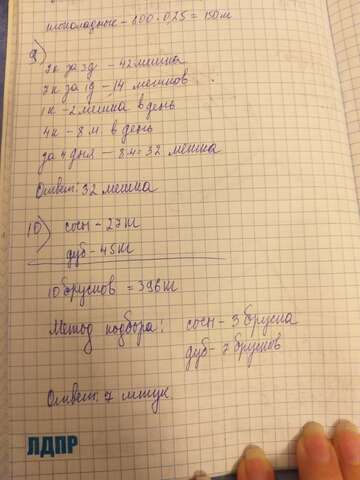 шоколадные - 600 · 0,25 = 150 м
9)
7к за 3д - 42 мешка
7к за 1д - 14 мешков
1к - 2 мешка в день
4к - 8 м. в день
за 4 дня - 8·4 = 32 мешка
Ответ: 32 мешка
10) сосн - 27 кг
дуб - 45 кг
10 брусков = 396 кг
Метод подбора: сосн - 3 бруска
дуб - 7 брусков
Ответ: 7 штук
ЛДПР